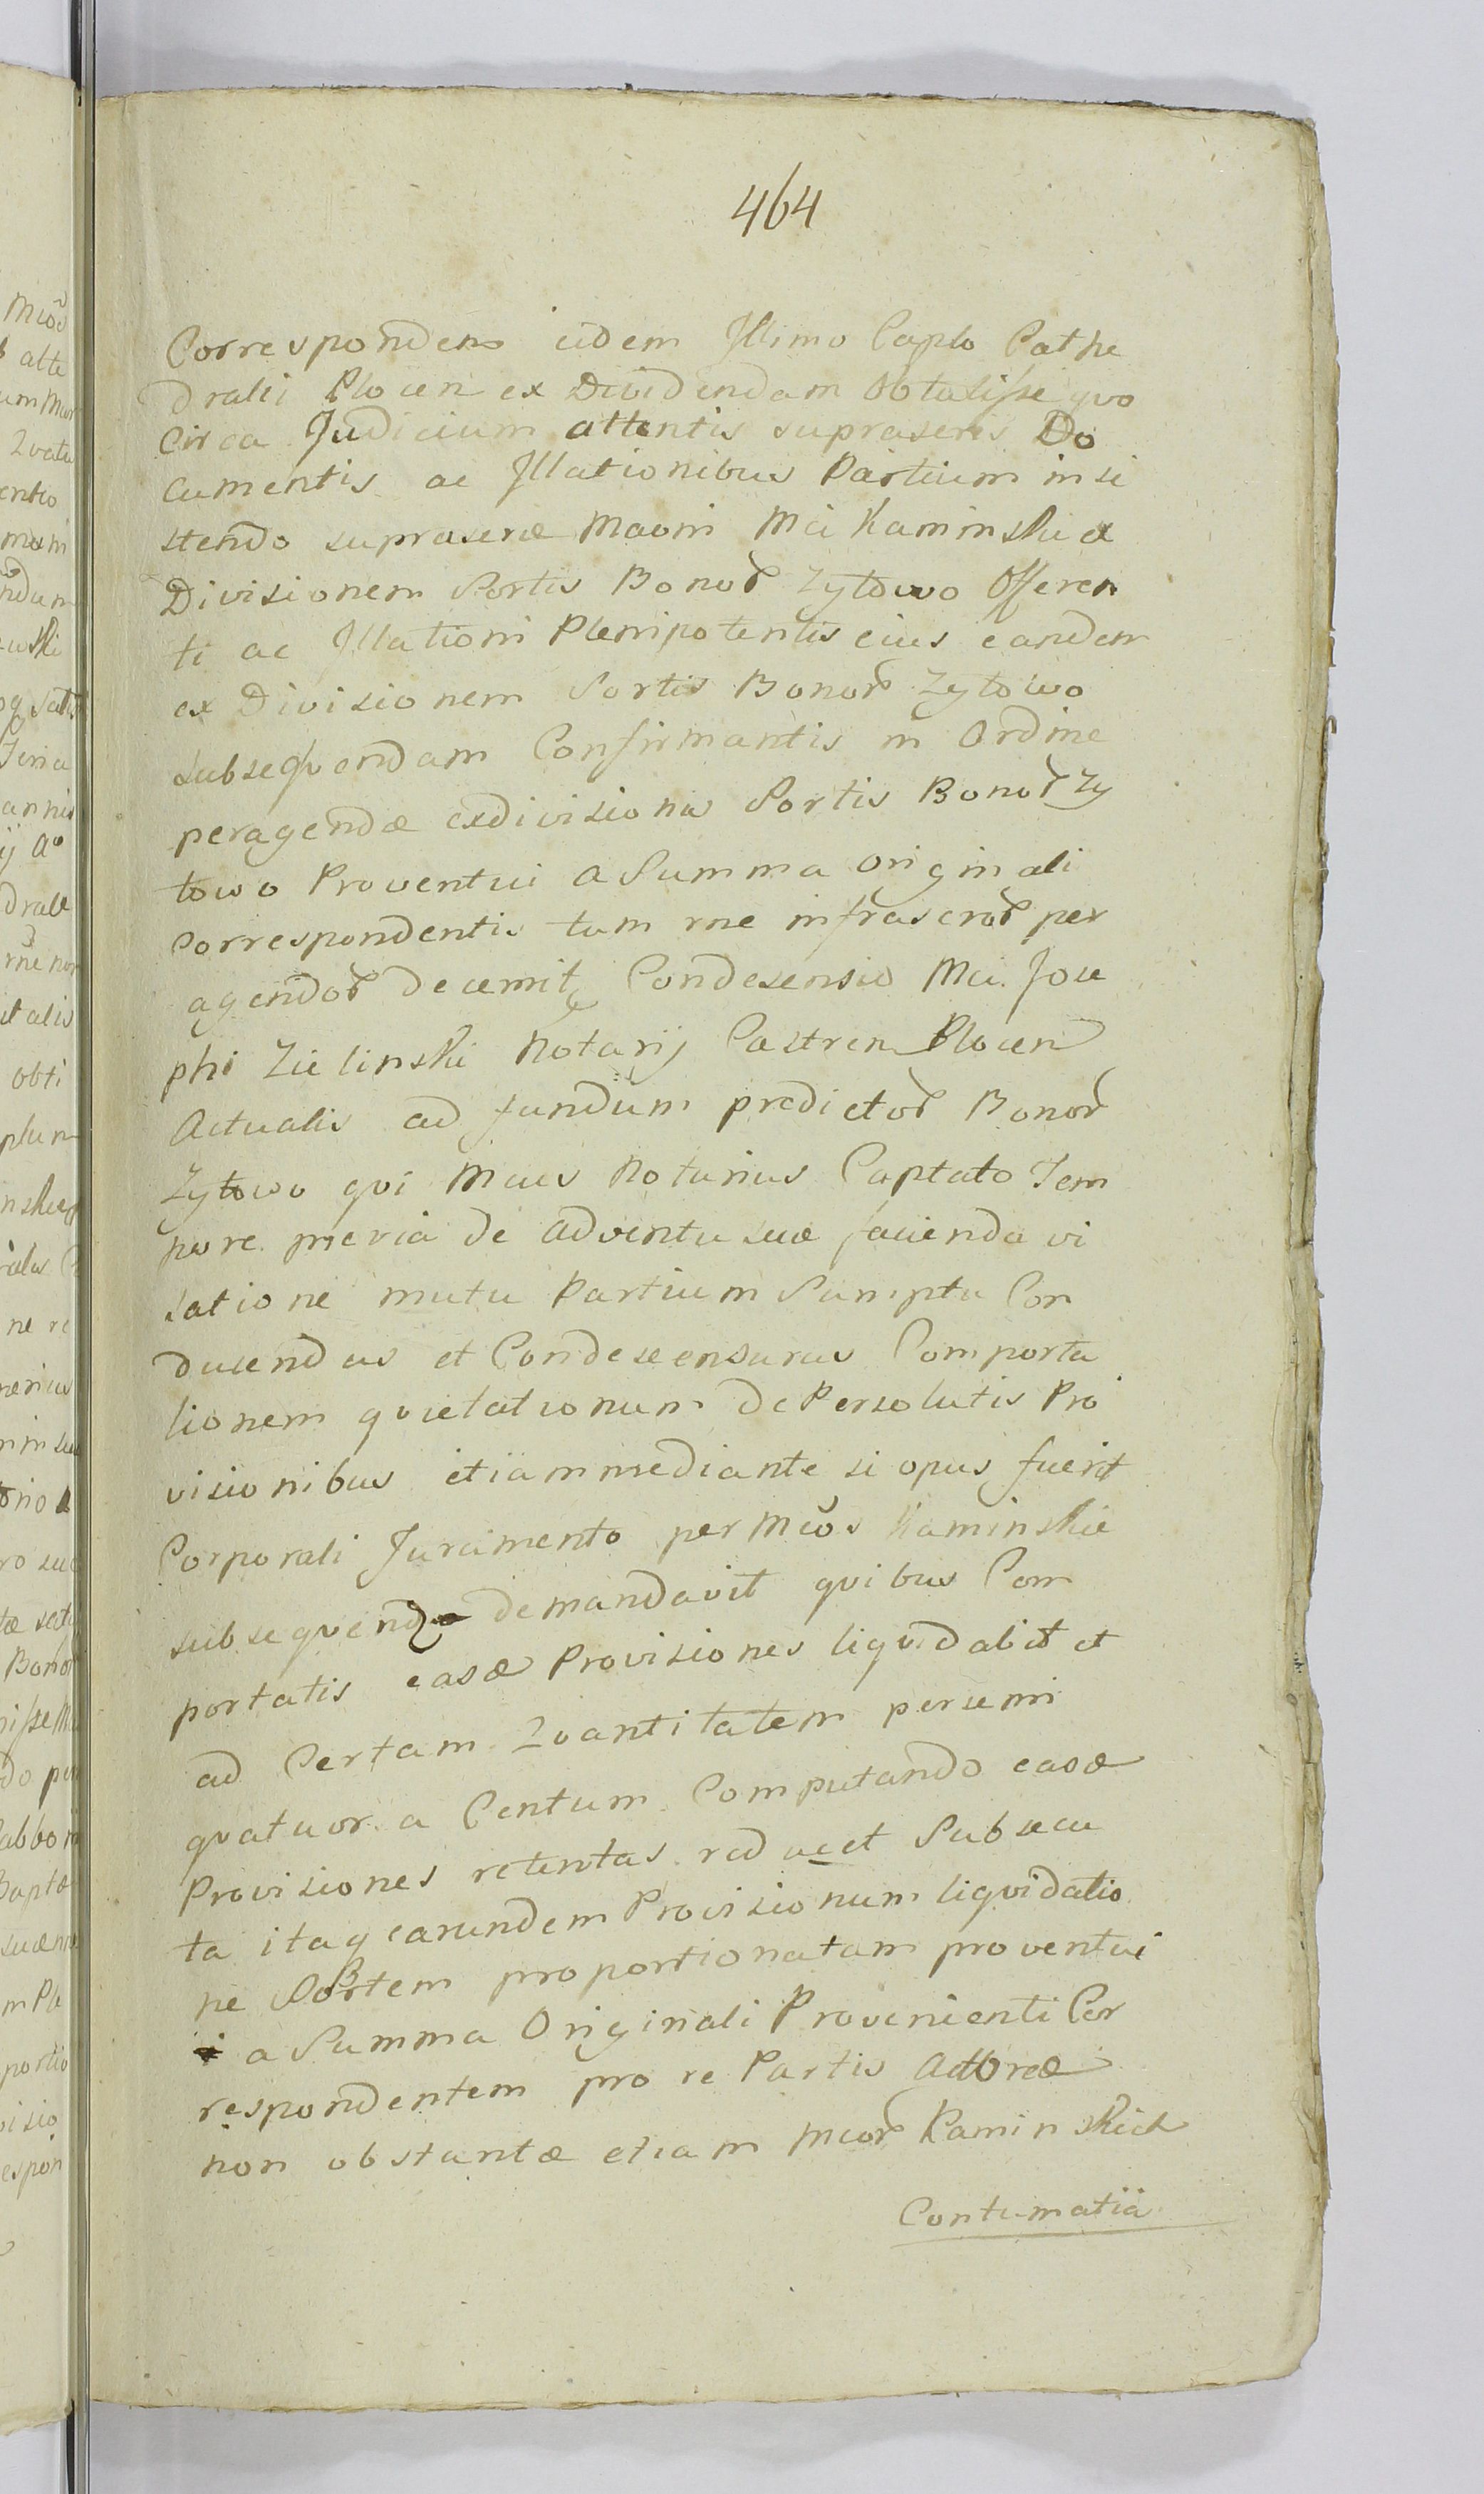 464
Correspondens eidem Illimo Caplo Cathe
drali Plocen ex Dividendam Obtulisse quo
circa Judicium attentis suprascris Do
cumentis ac Illationibus Partium insi
stendo suprascræ Maoni Mci Kaminski ex
Divisionem Sortis Bonor Zytowo Offeren
ti ac Illationi Plenipotentis eius eandem
ex Divisionem Sortis Bonor Zytowo
subsequendam Confirmantis in Ordine
peragendæ exdivisionis Sortis Bonor Zy
towo Proventui a Summa originali
correspondentis tum rne infrascror per
agendor decernit Condescensio Mci Jose
phi Zielinski Notarij Castren Plocen
Actualis ad fundum predictor Bonor
Zytowo qui Mcus Notarius Captato Tem
pore previa de adventu suæ facienda vi
satione mutu Partium Sumptu Con
ducendus et Condescensurus Comporta
tionem quietationum de Persolutis Pro
visionibus etiam mediante si opus fuerit
Corporali Juramento per Mcos Kaminskie
subsequend demandavit quibus Com
portatis easd Provisiones liquidabit et
ad Certam Quantitatem per semi
quatuor a Centum Computando easd
Provisiones retentas reducet Subsecu
ta itaq earundem Provisionum liquidatio
ne Sortem proportionatam proventui
a Summa Originali Provenienti Cor
respondentem pro re Partis Actoreæ
non obstante etiam Mcor Kaminskich
Contumatia